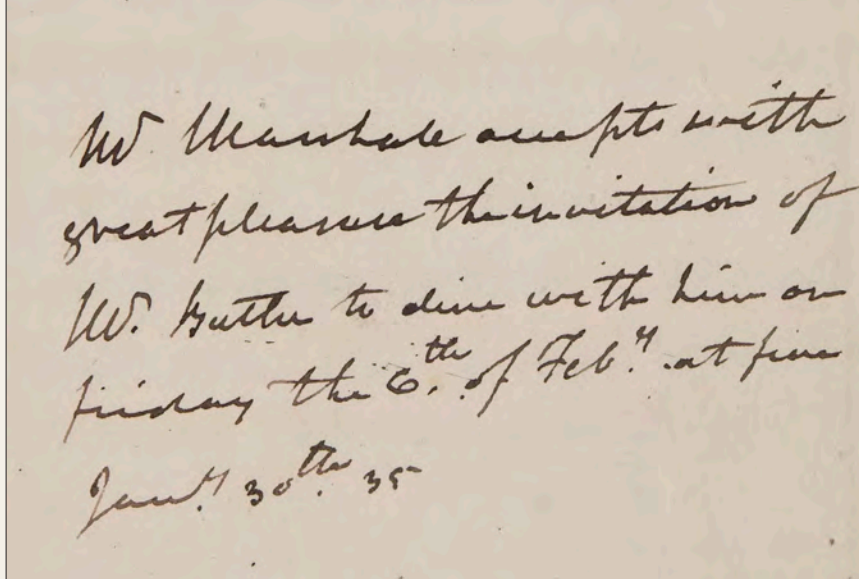 Mr. Marshall accepts with
great pleasure the invitation of
Mr. Butler to dine with him on
friday the 6th. of Feby. at five
Jany. 30th. 35